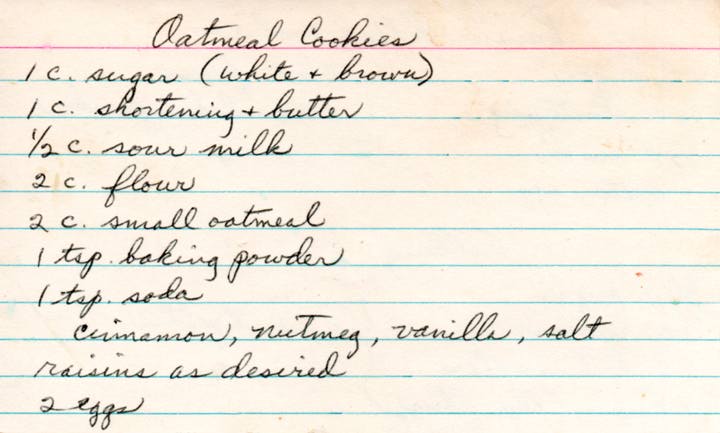 Oatmeal Cookies
1 c. sugar (white + brown)
1 c. shortening + butter
1/2 c. sour milk
2 c. flour
2 c. small oatmeal
1 tsp. baking powder
1 tsp. soda
cinnamon, nutmeg, vanilla, salt
raisins as desired
2 eggs